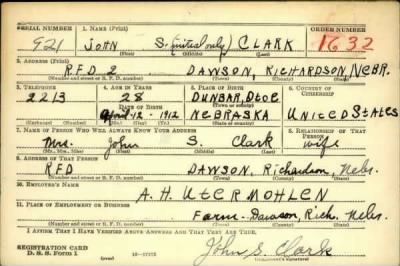 SERIAL NUMBER 1. NAME (Print) ORDER NUMBER
921 JOHN S. (initial only) CLARK 1632
2. ADDRESS (Print)
RFD 2 DAWSON, RICHARDSON, NEBR.
(Number and street or R. F. D. number) (Town) (County) (State)
3. TELEPHONE 4. AGE IN YEARS 5. PLACE OF BIRTH 6. COUNTRY OF CITIZENSHIP
2213 28 DUNBAR, Otoe
DATE OF BIRTH
April-12-1912 NEBRASKA UNITED STATES
(Exchange) (Number) (Mo.) (Day) (Yr.) (State or country)
7. NAME OF PERSON WHO WILL ALWAYS KNOW YOUR ADDRESS 8. RELATIONSHIP OF THAT PERSON
Mrs. John S. Clark wife
(Mr., Mrs., Miss) (First) (Middle) (Last)
9. ADDRESS OF THAT PERSON
RFD DAWSON, Richardson, Nebr.
(Number and street or R. F. D. number) (Town) (County) (State)
10. EMPLOYER'S NAME
A. H. UTERMOHLEN
11. PLACE OF EMPLOYMENT OR BUSINESS
Farm- Dawson, Rich. Nebr.
(Number and street or R. F. D. number) (Town) (County) (State)
I AFFIRM THAT I HAVE VERIFIED ABOVE ANSWERS AND THAT THEY ARE TRUE.
REGISTRATION CARD
D. S. S. Form 1 (over) John S. Clark
(Registrant's signature)